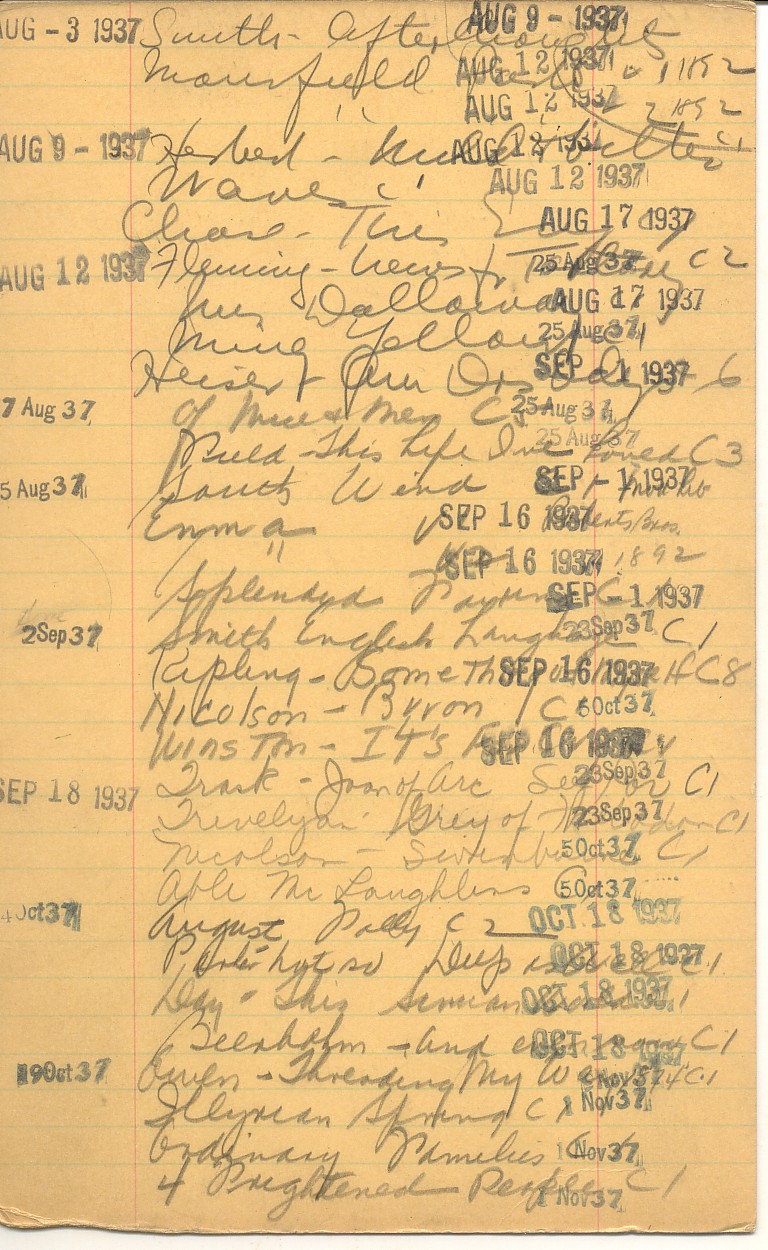 AUG - 3 1937 Smith - Afterthoughts AUG 9 - 1937
Mansfield AUG 12 1937 1 1892
" AUG 12 1937 2 1892
AUG 9 - 1937 Herbert - AUG 12 1937 C1
Waves C1 AUG 12 1937
Chase - This AUG 17 1937
AUG 12 1937 Fleming - News f Tartary 25 Aug 37 C2
Mrs Dalloway AUG 17 1937
Ming Yellow C1 25 Aug 37
Heiser Am Drs Odyssey SEP - 1 1937 6
7 Aug 37 Of Mice & Men C 25 Aug 37
This Life I've Loved C3 25 Aug 37
5 Aug 37 South Wind SEP - 1 1937 Mod Lib
Emma SEP 16 1937 Roberts Bros.
" SEP 16 1937 1892
Splendid SEP - 1 1937
2 Sep 37 Smith English Language 23 Sep 37 C1
Kipling - Something of Myself C8 SEP 16 1937
Nicolson - Byron C 5 Oct 37
Winston - It's SEP 16 1937
SEP 18 1937 Trask - Joan of Arc 23 Sep 37 C1
Trevelyan Grey of Fallodon C1 23 Sep 37
Nicolson - Swinburne C1 5 Oct 37
Able McLaughlins C 5 Oct 37
4 Oct 37 August Folly C2 OCT 18 1937
Not so Deep as a Well C1 OCT 18 1937
Day - This Simian World 1 OCT 18 1937
Beerbohm - And even now C1 OCT 18 1937
19 Oct 37 Owen - Threading My Way C1 Nov 37
Illyrian Spring C1 1 Nov 37
Ordinary Families C1 1 Nov 37
4 Frightened People C1 1 Nov 37